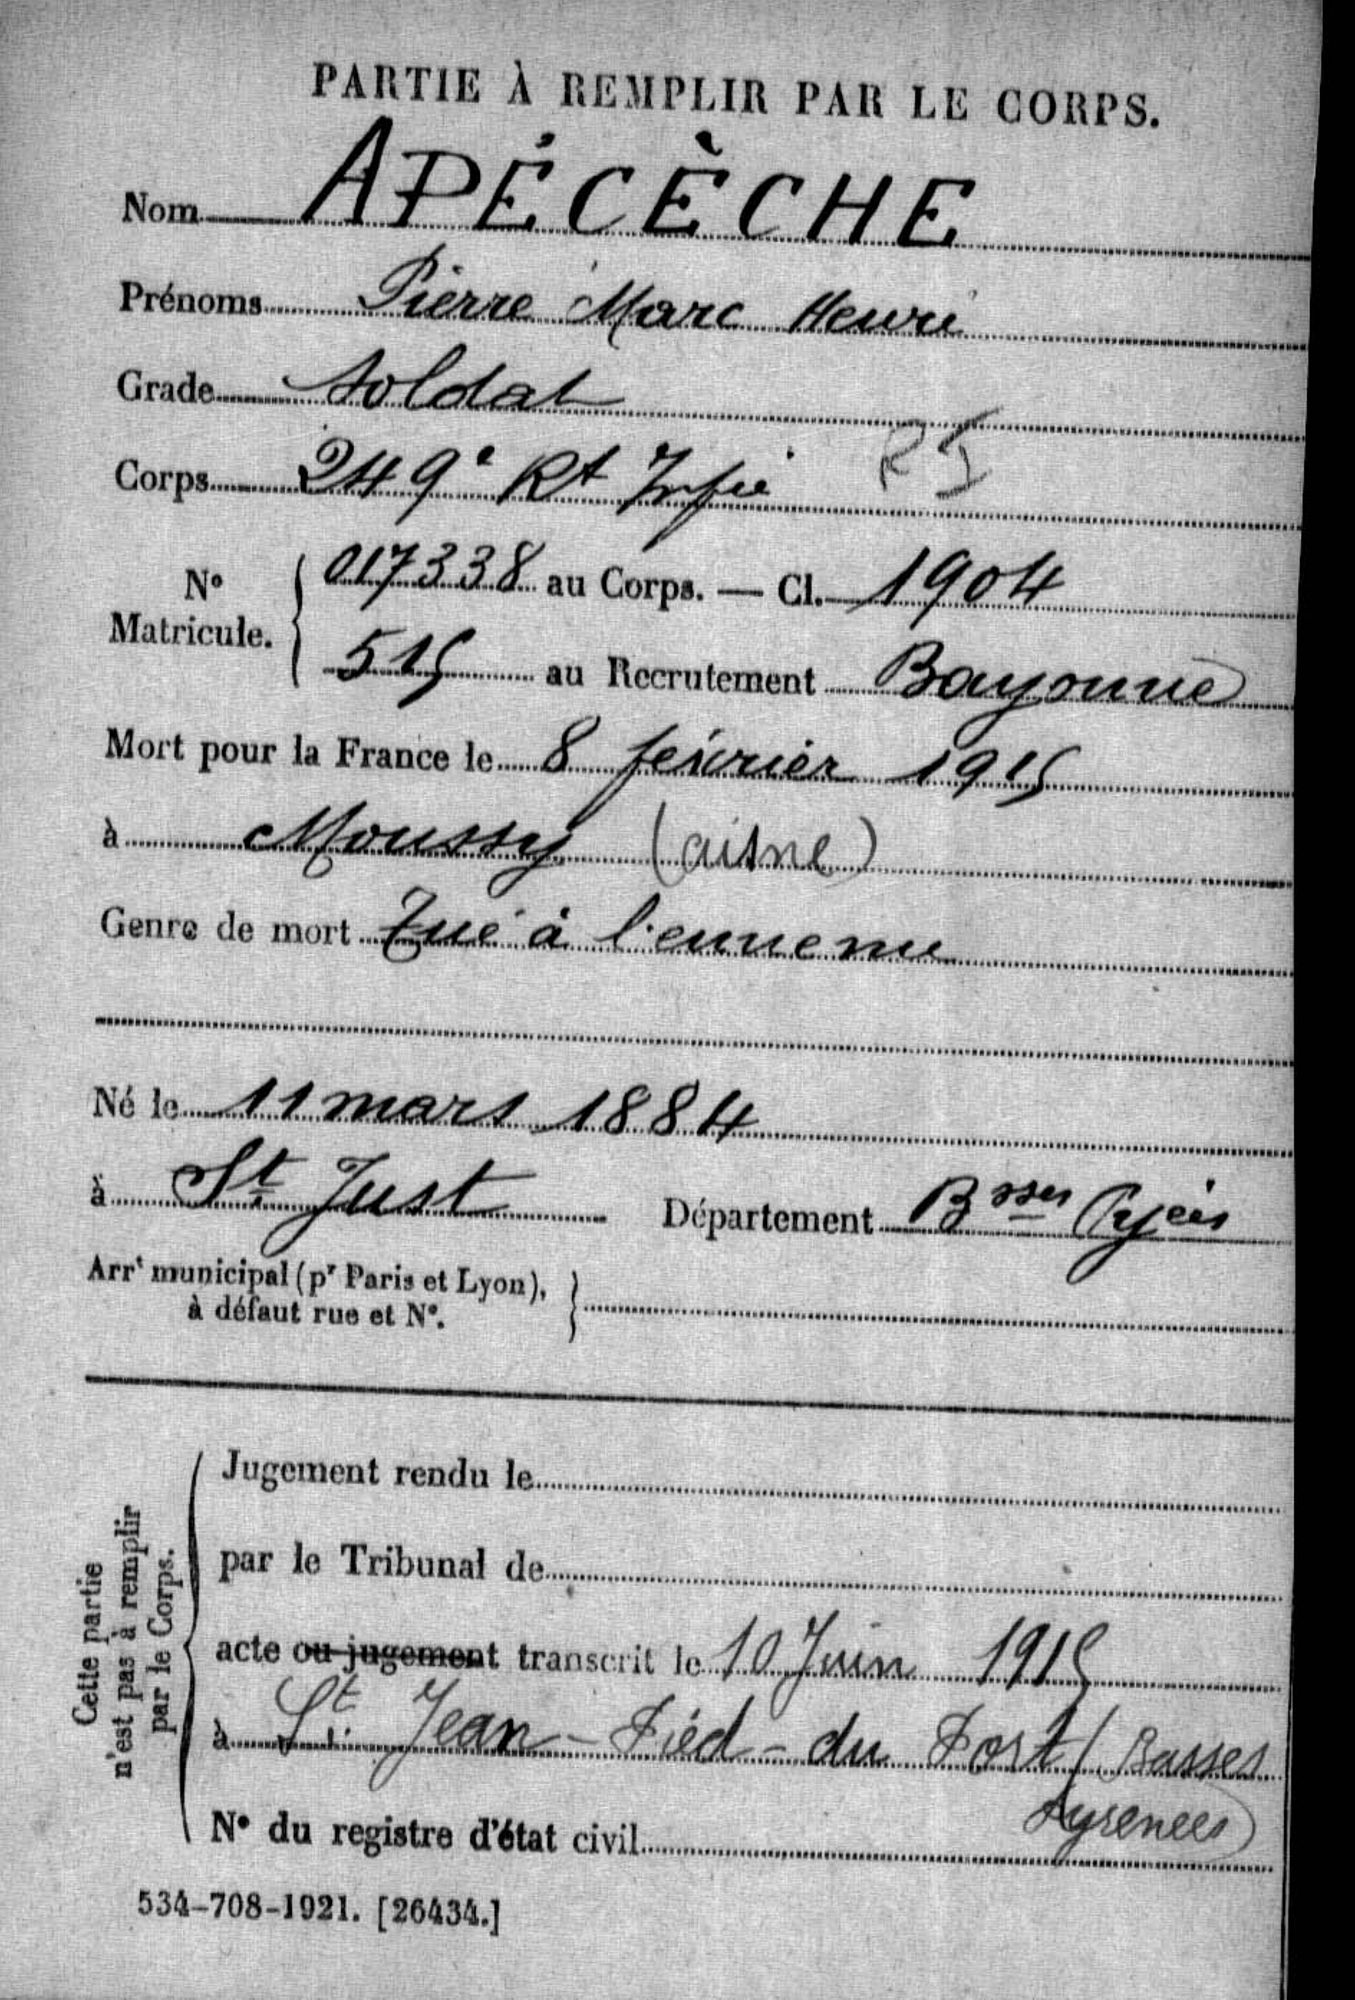 PARTIE À REMPLIR PAR LE CORPS.
Nom APÉCÈCHE
Prénoms Pierre Marc Henri
Grade Soldat
Corps 249e Rt Infie RI
No Matricule. { 017338 au Corps. — Cl. 1904
515 au Recrutement Bayonne
Mort pour la France le 8 février 1915
à Moussy (aisne)
Genre de mort Tué à l'ennemi
Né le 11 mars 1884
à St Just Département Bsses Pyées
Arrt municipal (pr Paris et Lyon), }
à défaut rue et No.
Cette partie
n'est pas à remplir
par le Corps.
Jugement rendu le
par le Tribunal de
acte ou jugement transcrit le 10 Juin 1915
à St Jean-Pied-du Port (Basses
Pyrenees)
No du registre d'état civil
534-708-1921. [26434.]